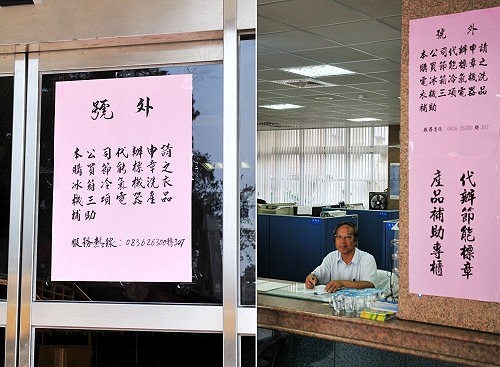 號外
本公司代辦申請
購買節能標章之
冰箱冷氣機洗衣
機三項電器產品
補助
服務熱線：083626300轉307
號外
本公司代辦申請
購買節能標章之
電冰箱冷氣機洗
衣機三項電器品
補助
服務專線 0836-26300 轉307
代辦節能標章
產品補助專櫃